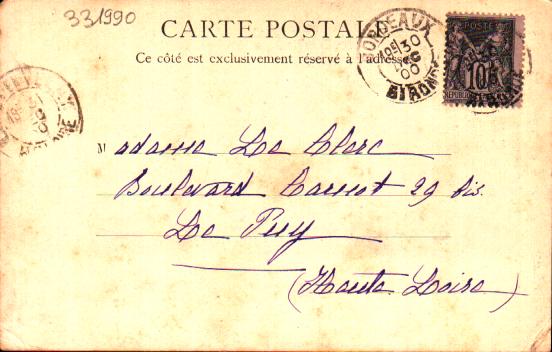 331990
CARTE POSTALE
Ce côté est exclusivement réservé à l'adresse
BORDEAUX
30
00
GIRONDE
POSTE
10
Madame Le Clerc
Boulevard Carnot 29 bis.
Le Puy
(Haute Loire)